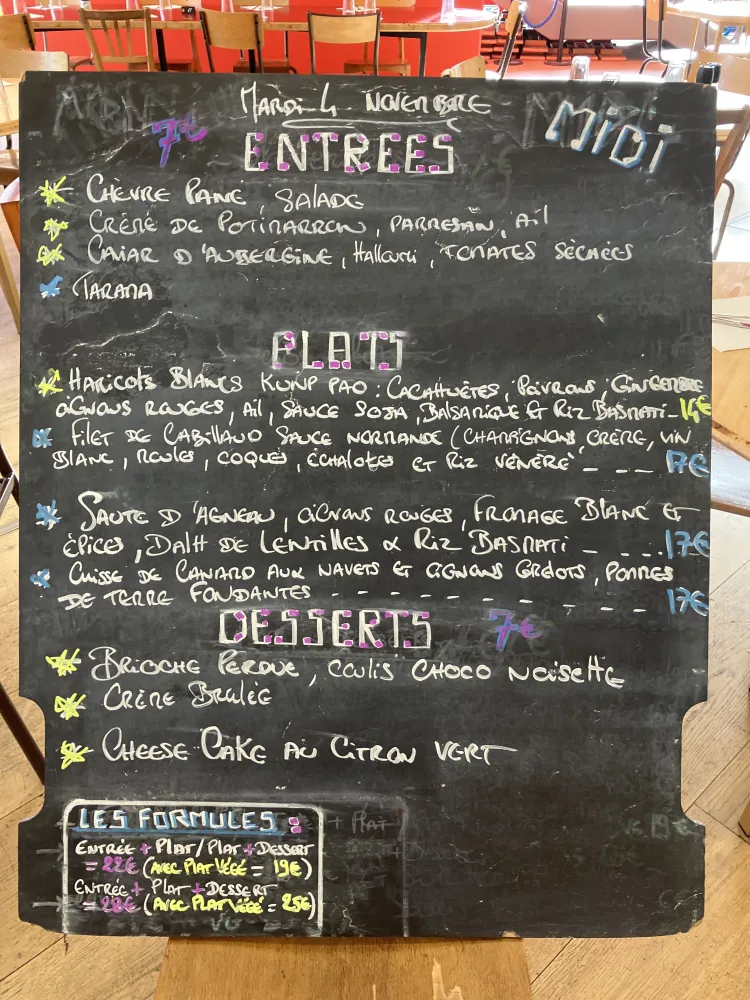 MARDI 4 NOVEMBRE
MIDI
7€
ENTREES
CHÈVRE PANÉ, SALADE
CRÈME DE POTIMARRON, PARMESAN, AIL
CAVIAR D'AUBERGINE, Halloumi, TOMATES SÉCHÉES
TARAMA
PLATS
HARICOTS BLANCS KUNP PAO : CACAHUÈTES, POIVRONS, GINGEMBRE
OIGNONS ROUGES, AIL, SAUCE SOJA, BALSAMIQUE ET RIZ BASMATI - 14€
FILET DE CABILLAUD SAUCE NORMANDE (CHAMPIGNONS, CRÈME, VIN
BLANC, MOULES, COQUES, ÉCHALOTES ET RIZ VÉNÉRÉ - - - 17€
SAUTÉ D'AGNEAU, OIGNONS ROUGES, FROMAGE BLANC ET
ÉPICES, DALH DE LENTILLES & RIZ BASMATI - - . . . 17€
CUISSE DE CANARD AUX NAVETS ET OIGNONS GRELOTS, POMMES
DE TERRE FONDANTES - - - - - - - - - - 17€
DESSERTS 7€
BRIOCHE PERDUE, COULIS CHOCO NOISETTE
CRÈME BRULÉE
CHEESE CAKE AU CITRON VERT
LES FORMULES :
ENTRÉE + PLAT / PLAT + DESSERT
= 22€ (AVEC PLAT VÉGÉ = 19€)
ENTRÉE + PLAT + DESSERT
= 28€ (AVEC PLAT VÉGÉ = 25€)